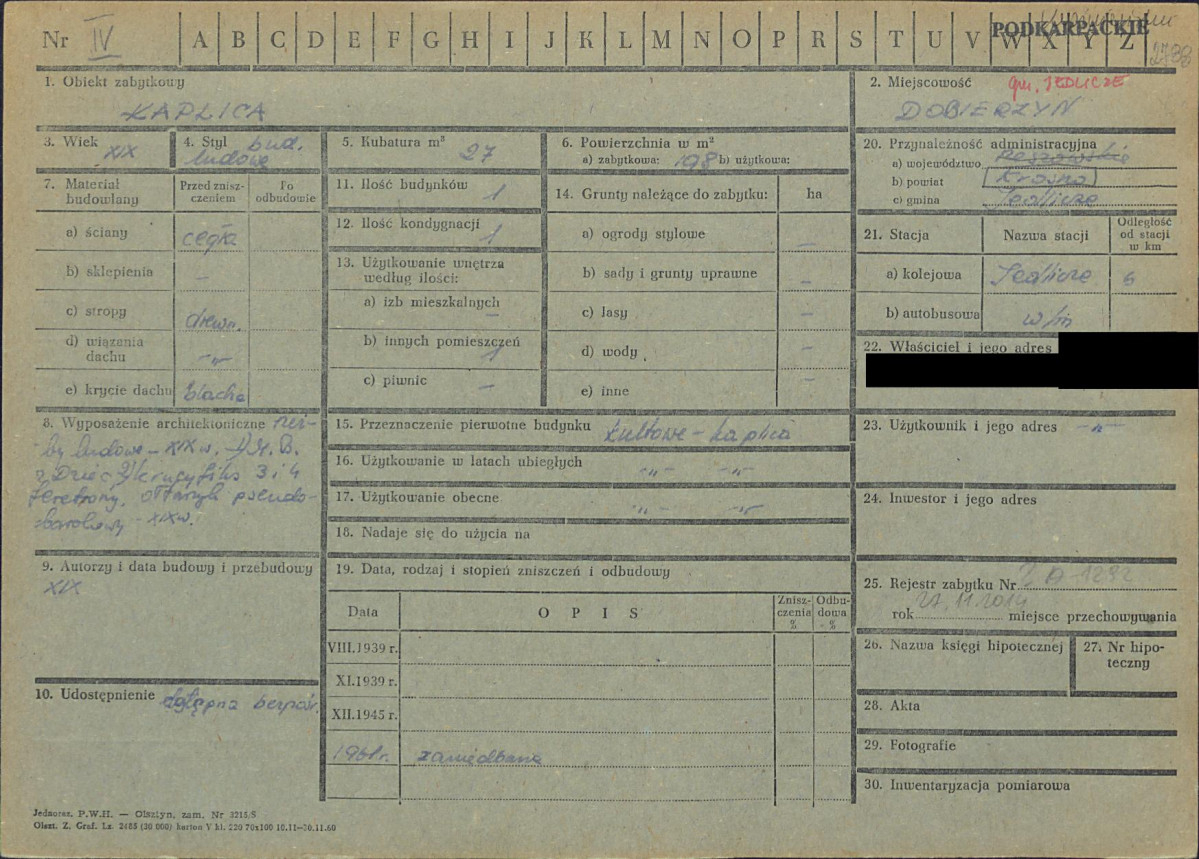 Nr IV A B C D E F G H I J K L M N O P R S T U V W X Y Z
PODKARPACKIE
1. Obiekt zabytkowy
KAPLICA
2. Miejscowość gm. JEDLICZE
DOBIERZYN
3. Wiek XIX
4. Styl bud. ludowe
5. Kubatura m³ 27
6. Powierzchnia w m²
a) zabytkowa: 198 b) użytkowa:
7. Materiał budowlany
Przed zniszczeniem
Po odbudowie
a) ściany cegła
b) sklepienia –
c) stropy drewn.
d) wiązania dachu -„-
e) krycie dachu blacha
8. Wyposażenie architektoniczne rzeź-
by ludowe – XIX w. M.B.
z Dziec. krucyfiks 3 i 4
feretrony, ołtarzyk pseudo-
barokowy – XIX w.
9. Autorzy i data budowy i przebudowy
XIX
10. Udostępnienie dostępna bezpośr.
11. Ilość budynków 1
12. Ilość kondygnacji 1
13. Użytkowanie wnętrza według ilości:
a) izb mieszkalnych –
b) innych pomieszczeń 1
c) piwnic –
14. Grunty należące do zabytku: ha
a) ogrody stylowe –
b) sady i grunty uprawne –
c) lasy –
d) wody –
e) inne
15. Przeznaczenie pierwotne budynku kultowe – kaplica
16. Użytkowanie w latach ubiegłych -„- -„-
17. Użytkowanie obecne -„- -„-
18. Nadaje się do użycia na
19. Data, rodzaj i stopień zniszczeń i odbudowy
Data O P I S Zniszczenia % Odbudowa %
VIII.1939 r.
XI.1939 r.
XII.1945 r.
1961r. zaniedbana
20. Przynależność administracyjna
a) województwo Rzeszowskie
b) powiat Krosno
c) gmina Jedlicze
21. Stacja Nazwa stacji Odległość od stacji w km
a) kolejowa Jedlicze 6
b) autobusowa w/m
22. Właściciel i jego adres
23. Użytkownik i jego adres -„-
24. Inwestor i jego adres
25. Rejestr zabytku Nr A 1292
rok 27.11.2014 miejsce przechowywania
26. Nazwa księgi hipotecznej
27. Nr hipoteczny
28. Akta
29. Fotografie
30. Inwentaryzacja pomiarowa
Jednoraz. P.W.H. — Olsztyn, zam. Nr 3215/S
Olszt. Z. Graf. Lz. 2485 (30 000) karton V kl. 220 70x100 10.11—30.11.60